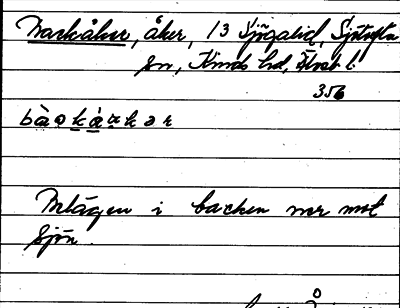 Backåker, åker, 13 Sjögalid, Sjötofta
sn, Kinds hd, Älvsb. l.
356
bàɔkáʀkər
Belägen i backen ner mot
sjön.